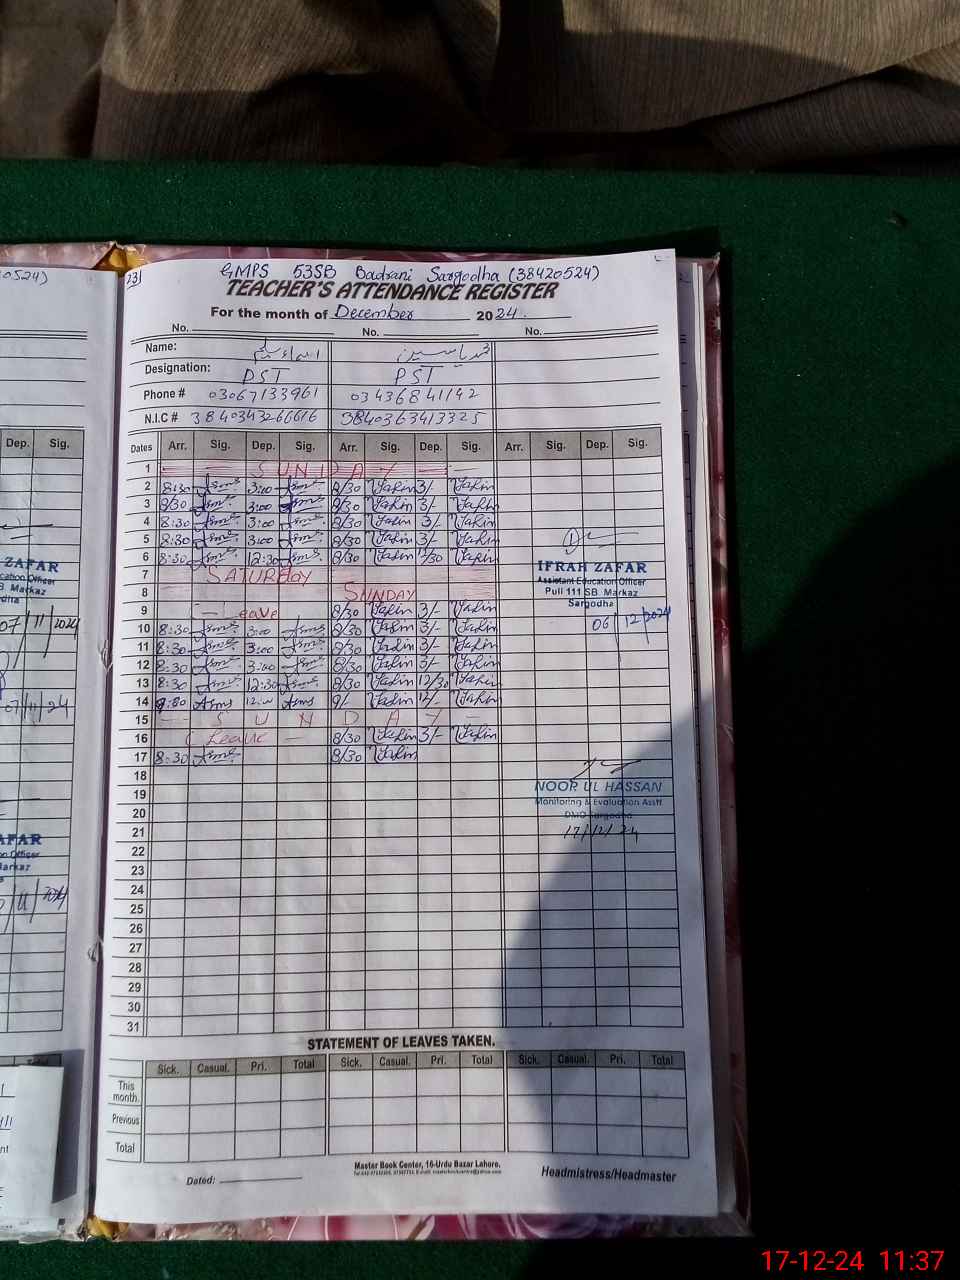 0524)
23
GMPS 53SB Badrani Sargodha (38420524)
TEACHER'S ATTENDANCE REGISTER
For the month of December 2024
No. No. No.
Name:
Designation: PST PST
Phone # 03067133961 03436841142
N.I.C # 3840343266616 3840363413325
Dates Arr. Sig. Dep. Sig. Arr. Sig. Dep. Sig. Arr. Sig. Dep. Sig.
1 SUNDAY
2 8:30 Asma 3:00 Asma 8/30 Yasin 3/- Yasin
3 8/30 Asma 3:00 Asma 8/30 Yasin 3/- Yasin
4 8:30 Asma 3:00 Asma 8/30 Yasin 3/- Yasin
5 8:30 Asma 3:00 Asma 8/30 Yasin 3/- Yasin
6 8:30 Asma 12:30 Asma 8/30 Yasin 12/30 Yasin
7 SATURDAY
8 SUNDAY
9 Leave 8/30 Yasin 3/- Yasin
10 8:30 Asma 3:00 Asma 8/30 Yasin 3/- Yasin
11 8:30 Asma 3:00 Asma 8/30 Yasin 3/- Yasin
12 8:30 Asma 3:00 Asma 8/30 Yasin 3/- Yasin
13 8:30 Asma 12:30 Asma 8/30 Yasin 12/30 Yasin
14 Asma Asma 9/- Yasin 12/- Yasin
15 SUNDAY
16 Leave 8/30 Yasin 3/- Yasin
17 8:30 Asma 8/30 Yasin
18
19
20
21
22
23
24
25
26
27
28
29
30
31
IFRAH ZAFAR
Assistant Education Officer
Pull 111 SB Markaz
Sargodha
06/12/2024
NOOR UL HASSAN
Monitoring & Evaluation Asstt
DMO Sargodha
17/12/24
STATEMENT OF LEAVES TAKEN.
Sick. Casual. Pri. Total Sick. Casual. Pri. Total Sick. Casual. Pri. Total
This month.
Previous
Total
Master Book Center, 16-Urdu Bazar Lahore.
Dated: Headmistress/Headmaster
Dep. Sig.
ZAFAR
cation Officer
B Markaz
odha
07/11/2024
07/11/24
AFAR
n Officer
arkaz
11/2024
17-12-24 11:37